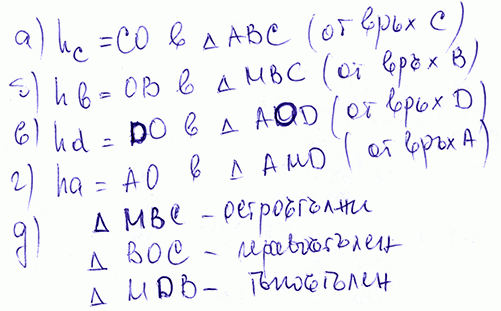 а) hc = CO в △ ABC (от връх C)
б) hв = OB в △ MBC (от връх B)
в) hd = DO в △ AOD (от връх D)
г) ha = AO в △ AMD (от връх A)
д) △ MBC – остроъгълни
△ BOC – правоъгълен
△ MDB – тъпоъгълен